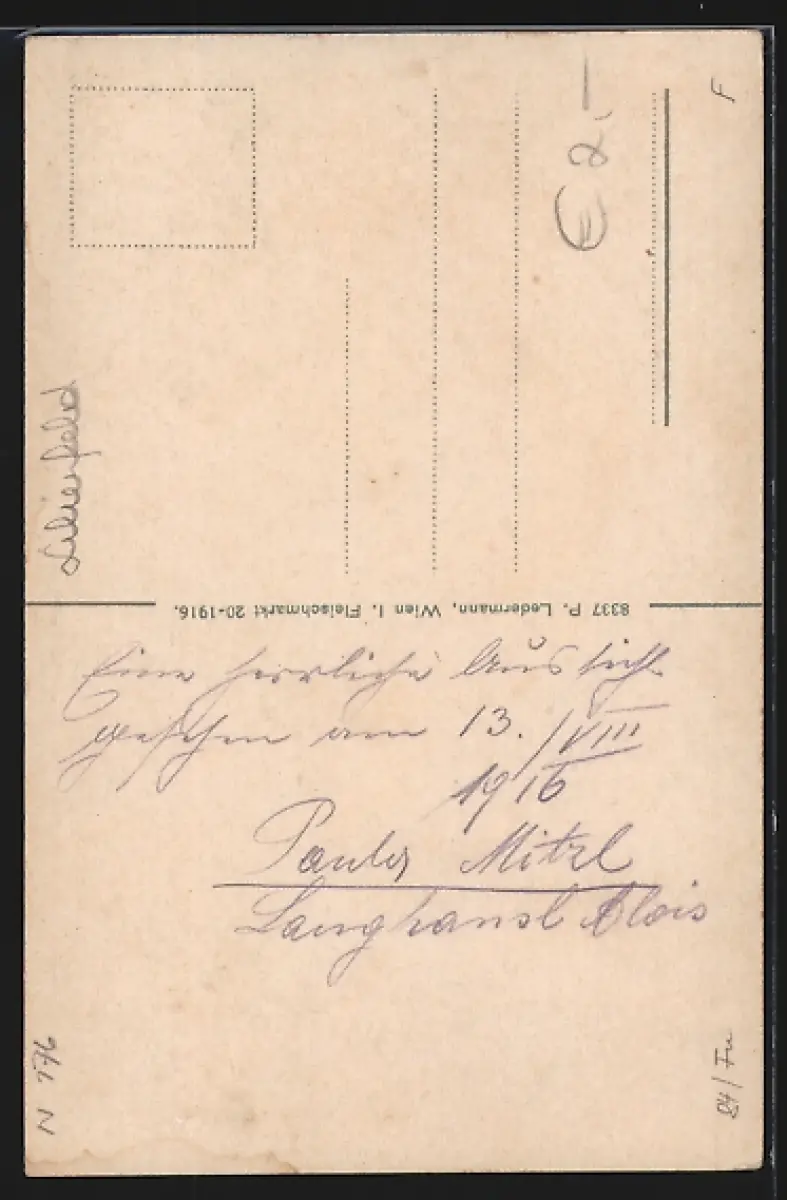 F
€ 2.-
Lilienfeld
8337 P. Ledermann, Wien I. Fleischmarkt 20-1916.
Eine herrliche Aussicht
gesehen am 13./VIII
1916
Mitzl
Langhansl Alois
N 176
84/Fu